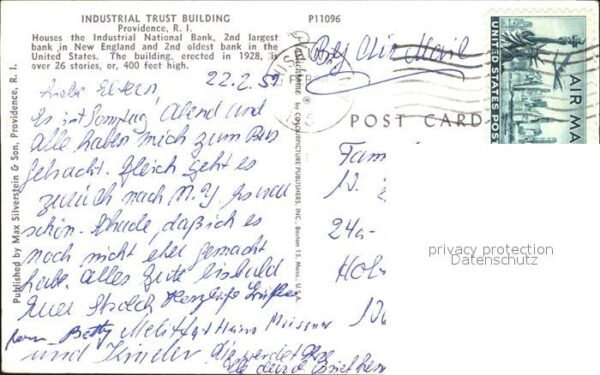 INDUSTRIAL TRUST BUILDING
Providence, R. I.
P11096
Houses the Industrial National Bank, 2nd largest
bank in New England and 2nd oldest bank in the
United States. The building, erected in 1928, is
over 26 stories, or, 400 feet high.
Published by Max Silverstein & Son, Providence, R. I.
by COLOURPICTURE PUBLISHERS, INC. Boston 15, Mass., U.S.A.
By Air Mail
UNITED STATES POS
AIR MA
POST CARD
22.2.59
Liebe Eltern,
Es ist Sonntag Abend und
alle haben mich zum Bus
gebracht. Gleich geht es
zurück nach N.Y. Es war
schön. Schade, daß ich es
noch nicht eher gemacht
habe. Alles Gute bis bald
Euer Herzliche Grüße
Betty Hans
und Kinder
Fam
24a
Hol
privacy protection
Datenschutz